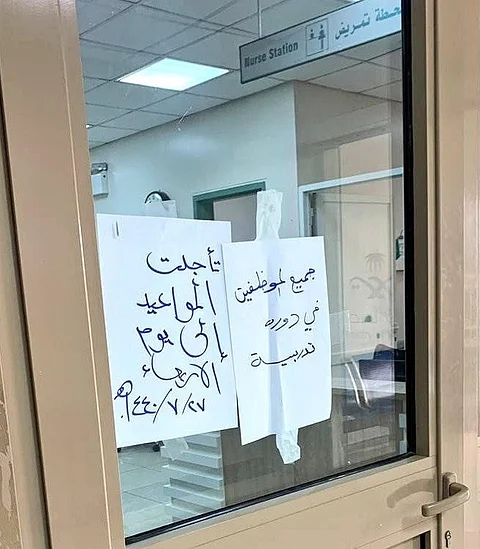 محطة تمريض
Nurse Station
تأجلت
المواعيد
إلى يوم
الأربعاء
١٤٤٠/٧/٢٧هـ
جميع الموظفين
في دوره
تدريبية